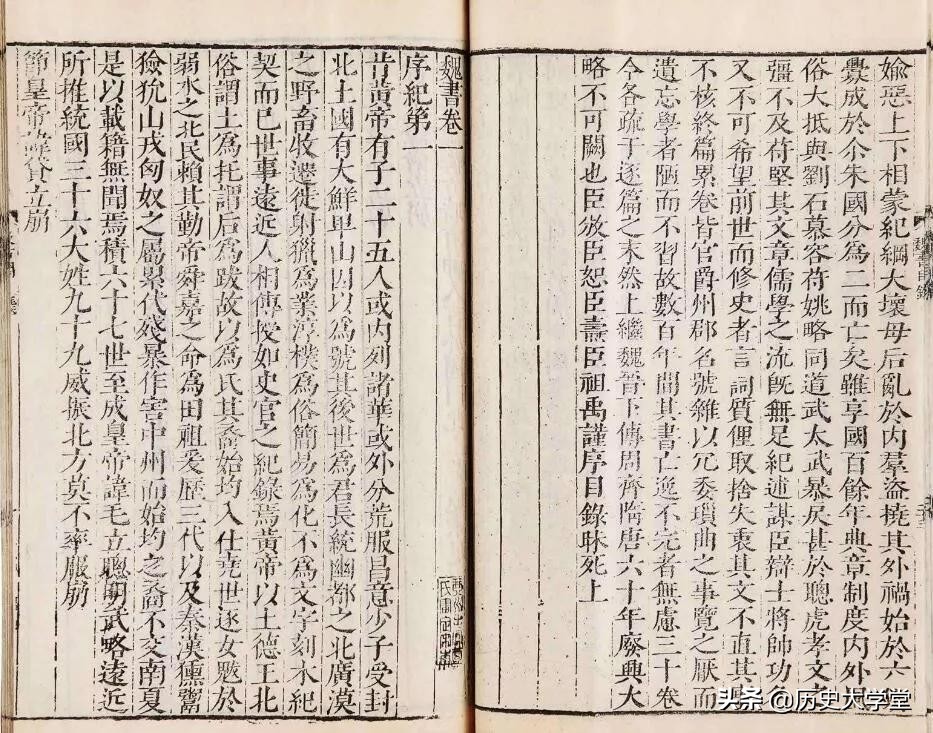 婾惡上下相蒙紀綱大壞母后亂於內羣盜撓其外禍始於六
釁成於尒朱國分為二而亡矣雖享國百餘年典章制度內外
俗大抵與劉石慕容苻姚略同道武太武暴戾甚於聰虎孝文
彊不及苻堅其文章儒學之流既無足紀述謀臣辯士將帥功
又不可希望前世而修史者言詞質俚取捨失衷其文不直其
不核終篇累卷皆官爵州郡名號雜以冗委瑣曲之事覽之厭而
遺忘學者陋而不習故數百年間其書亡逸不完者無慮三十卷
今各疏于逐篇之末然上繼魏晉下傳周齊隋唐六十年廢興大
略不可闕也臣攽臣恕臣燾臣祖禹謹序目錄昧死上
魏書卷一
序紀第一
昔黃帝有子二十五人或內列諸華或外分荒服昌意少子受封
北土國有大鮮卑山因以為號其後世為君長統幽都之北廣漠
之野畜牧遷徙射獵為業淳樸為俗簡易為化不為文字刻木紀
契而已世事遠近人相傳授如史官之紀錄焉黃帝以土德王北
俗謂土為托謂后為跋故以為氏其裔始均入仕堯世逐女魃於
弱水之北民賴其勤帝舜嘉之命為田祖爰歷三代以及秦漢獯鬻
獫狁山戎匈奴之屬累代殘暴作害中州而始均之裔不交南夏
是以載籍無聞焉積六十七世至成皇帝諱毛立聰明武略遠近
所推統國三十六大姓九十九威振北方莫不率服崩
簡皇帝諱貸立崩
頭条 @历史大学堂